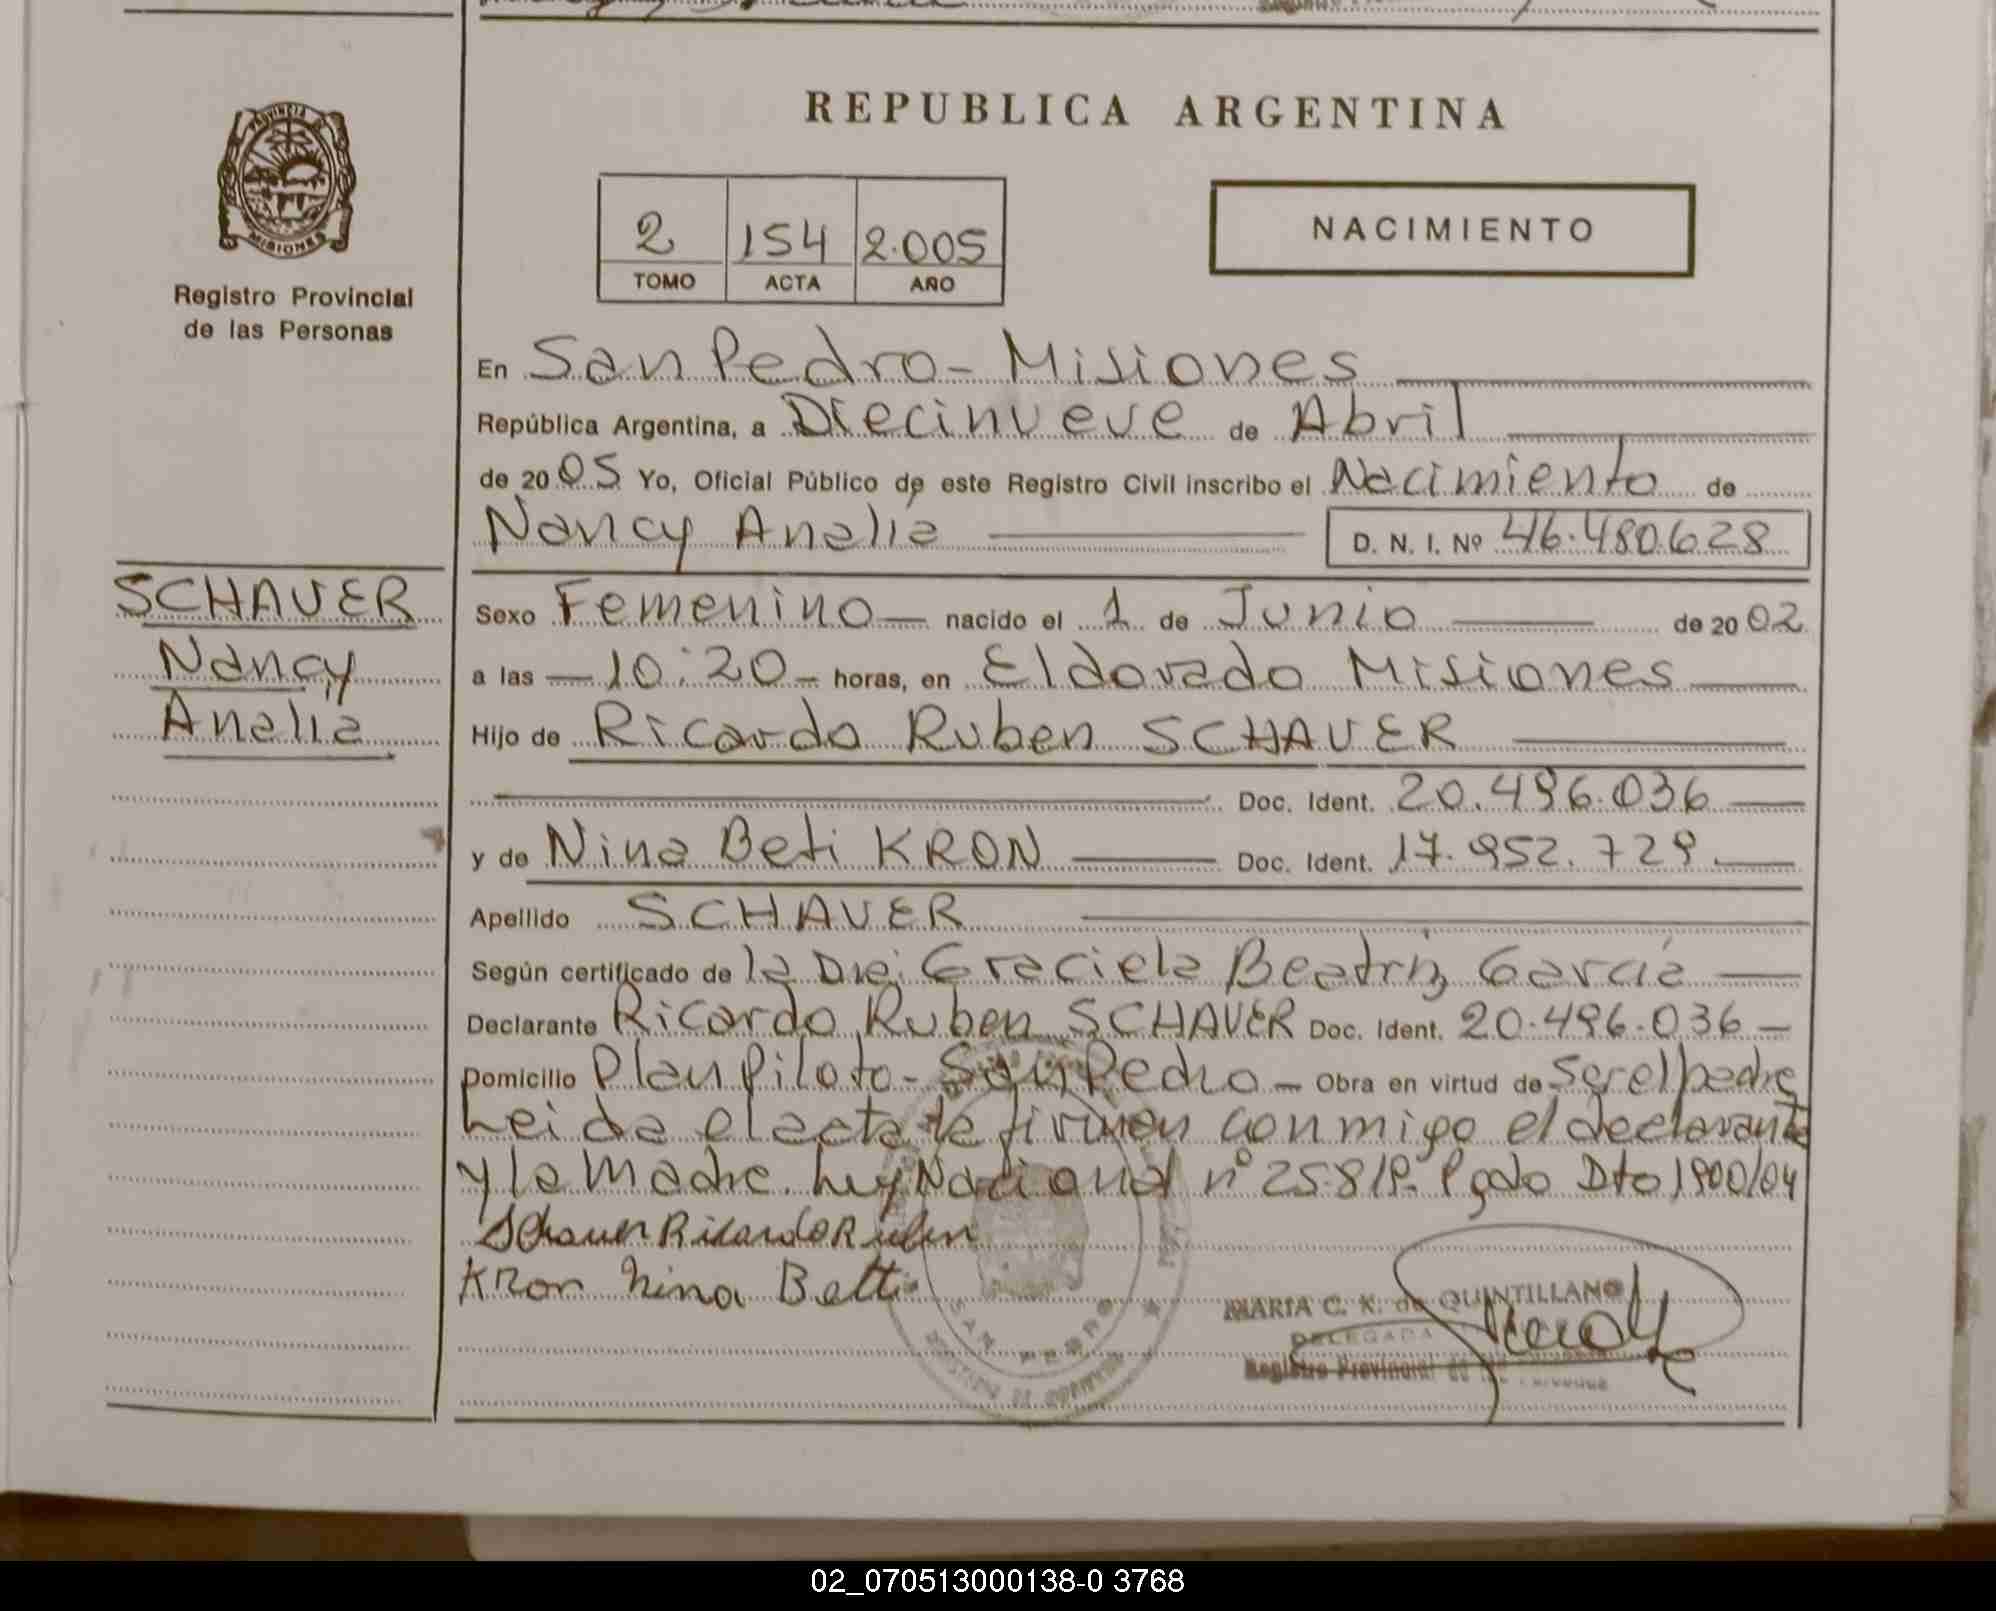 REPUBLICA ARGENTINA
PROVINCIA DE
MISIONES
Registro Provincial
de las Personas
2 154 2.005
TOMO ACTA AÑO
NACIMIENTO
En San Pedro - Misiones
República Argentina, a Diecinueve de Abril
de 2005 Yo, Oficial Público de este Registro Civil inscribo el Nacimiento de
Nancy Analia D. N. I. Nº 46.480.628
SCHAUER
Nancy
Analia
Sexo Femenino nacido el 1 de Junio de 2002
a las 10:20 horas, en Eldorado Misiones
Hijo de Ricardo Ruben SCHAUER
Doc. Ident. 20.496.036
y de Nina Beti KRON Doc. Ident. 17.952.729
Apellido SCHAUER
Según certificado de la Dra. Graciela Beatriz Garcia
Declarante Ricardo Ruben SCHAUER Doc. Ident. 20.496.036
Domicilio Plan Piloto - San Pedro - Obra en virtud de Ser el padre
Leida el acta la firman conmigo el declarante
y la Madre. Ley Nacional nº 25.819. Pgdo Dto 1900/04
Schauer Ricardo Ruben
Kron Nina Betti
MARIA C. K. de QUINTILLANO
DELEGADA
Registro Provincial de las Personas
SAN PEDRO
02_070513000138-0 3768